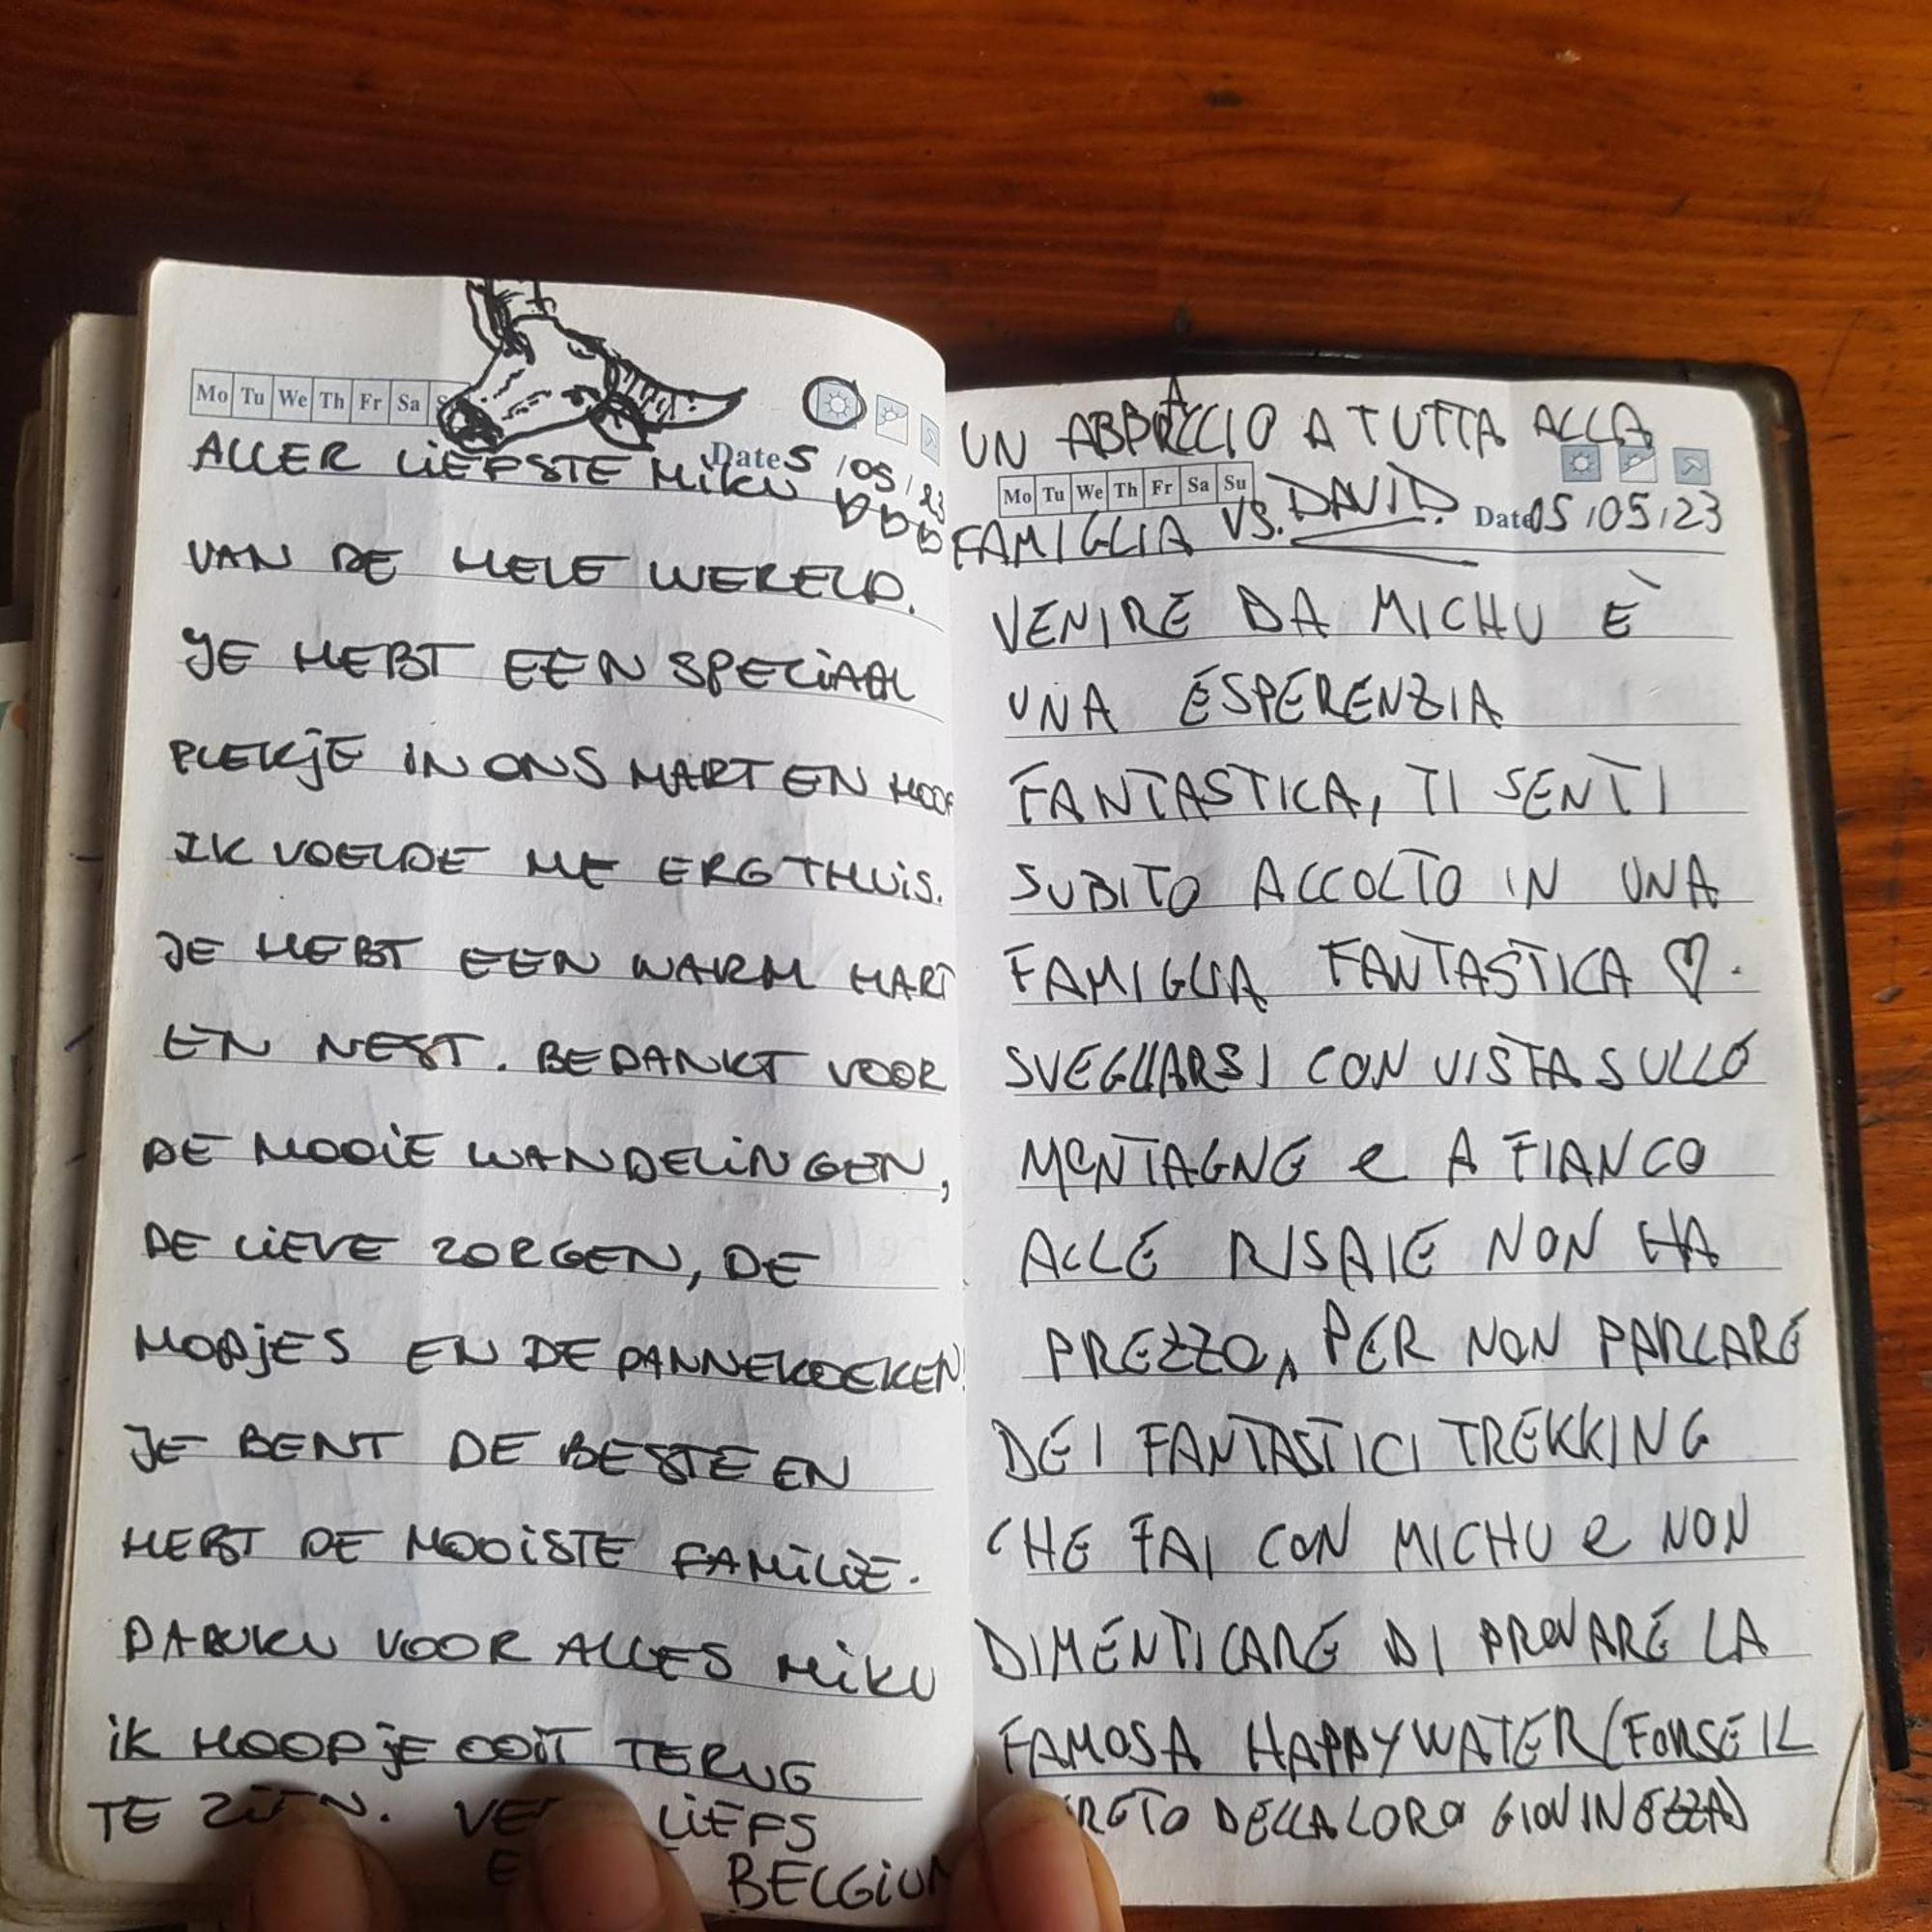 Mo Tu We Th Fr Sa
Date 5/05/23
ALLER LIEFSTE MIKU
VAN DE HELE WERELD.
JE HEBT EEN SPECIAAL
PLEKJE IN ONS HART EN
IK VOELDE ME ERG THUIS.
JE HEBT EEN WARM HART
EN NEST. BEDANKT VOOR
DE MOOIE WANDELINGEN,
DE LIEVE ZORGEN, DE
MOPJES EN DE PANNEKOEKEN!
JE BENT DE BESTE EN
HEBT DE MOOISTE FAMILIE.
VOOR ALLES MIKU
IK HOOP JE OOIT TERUG
TE LIEFS
BELGIUM
UN ABBRACCIO A TUTTA ALLA
Mo Tu We Th Fr Sa Su
Date 05/05/23
FAMIGLIA VS. DAVID.
VENIRE DA MICHU È
UNA ESPERENZIA
FANTASTICA, TI SENTI
SUBITO ACCOLTO IN UNA
FAMIGLIA FANTASTICA ♡.
SVEGLIARSI CON VISTA SULLO
MONTAGNE e A FIANCO
ALLE RISAIE NON HA
PREZZO, PER NON PARLARE
DEI FANTASTICI TREKKING
CHE FAI CON MICHU e NON
DIMENTICARE DI PROVARE LA
FAMOSA HAPPY WATER (FORSE IL
DELLA LORO GIOVINEZZA)